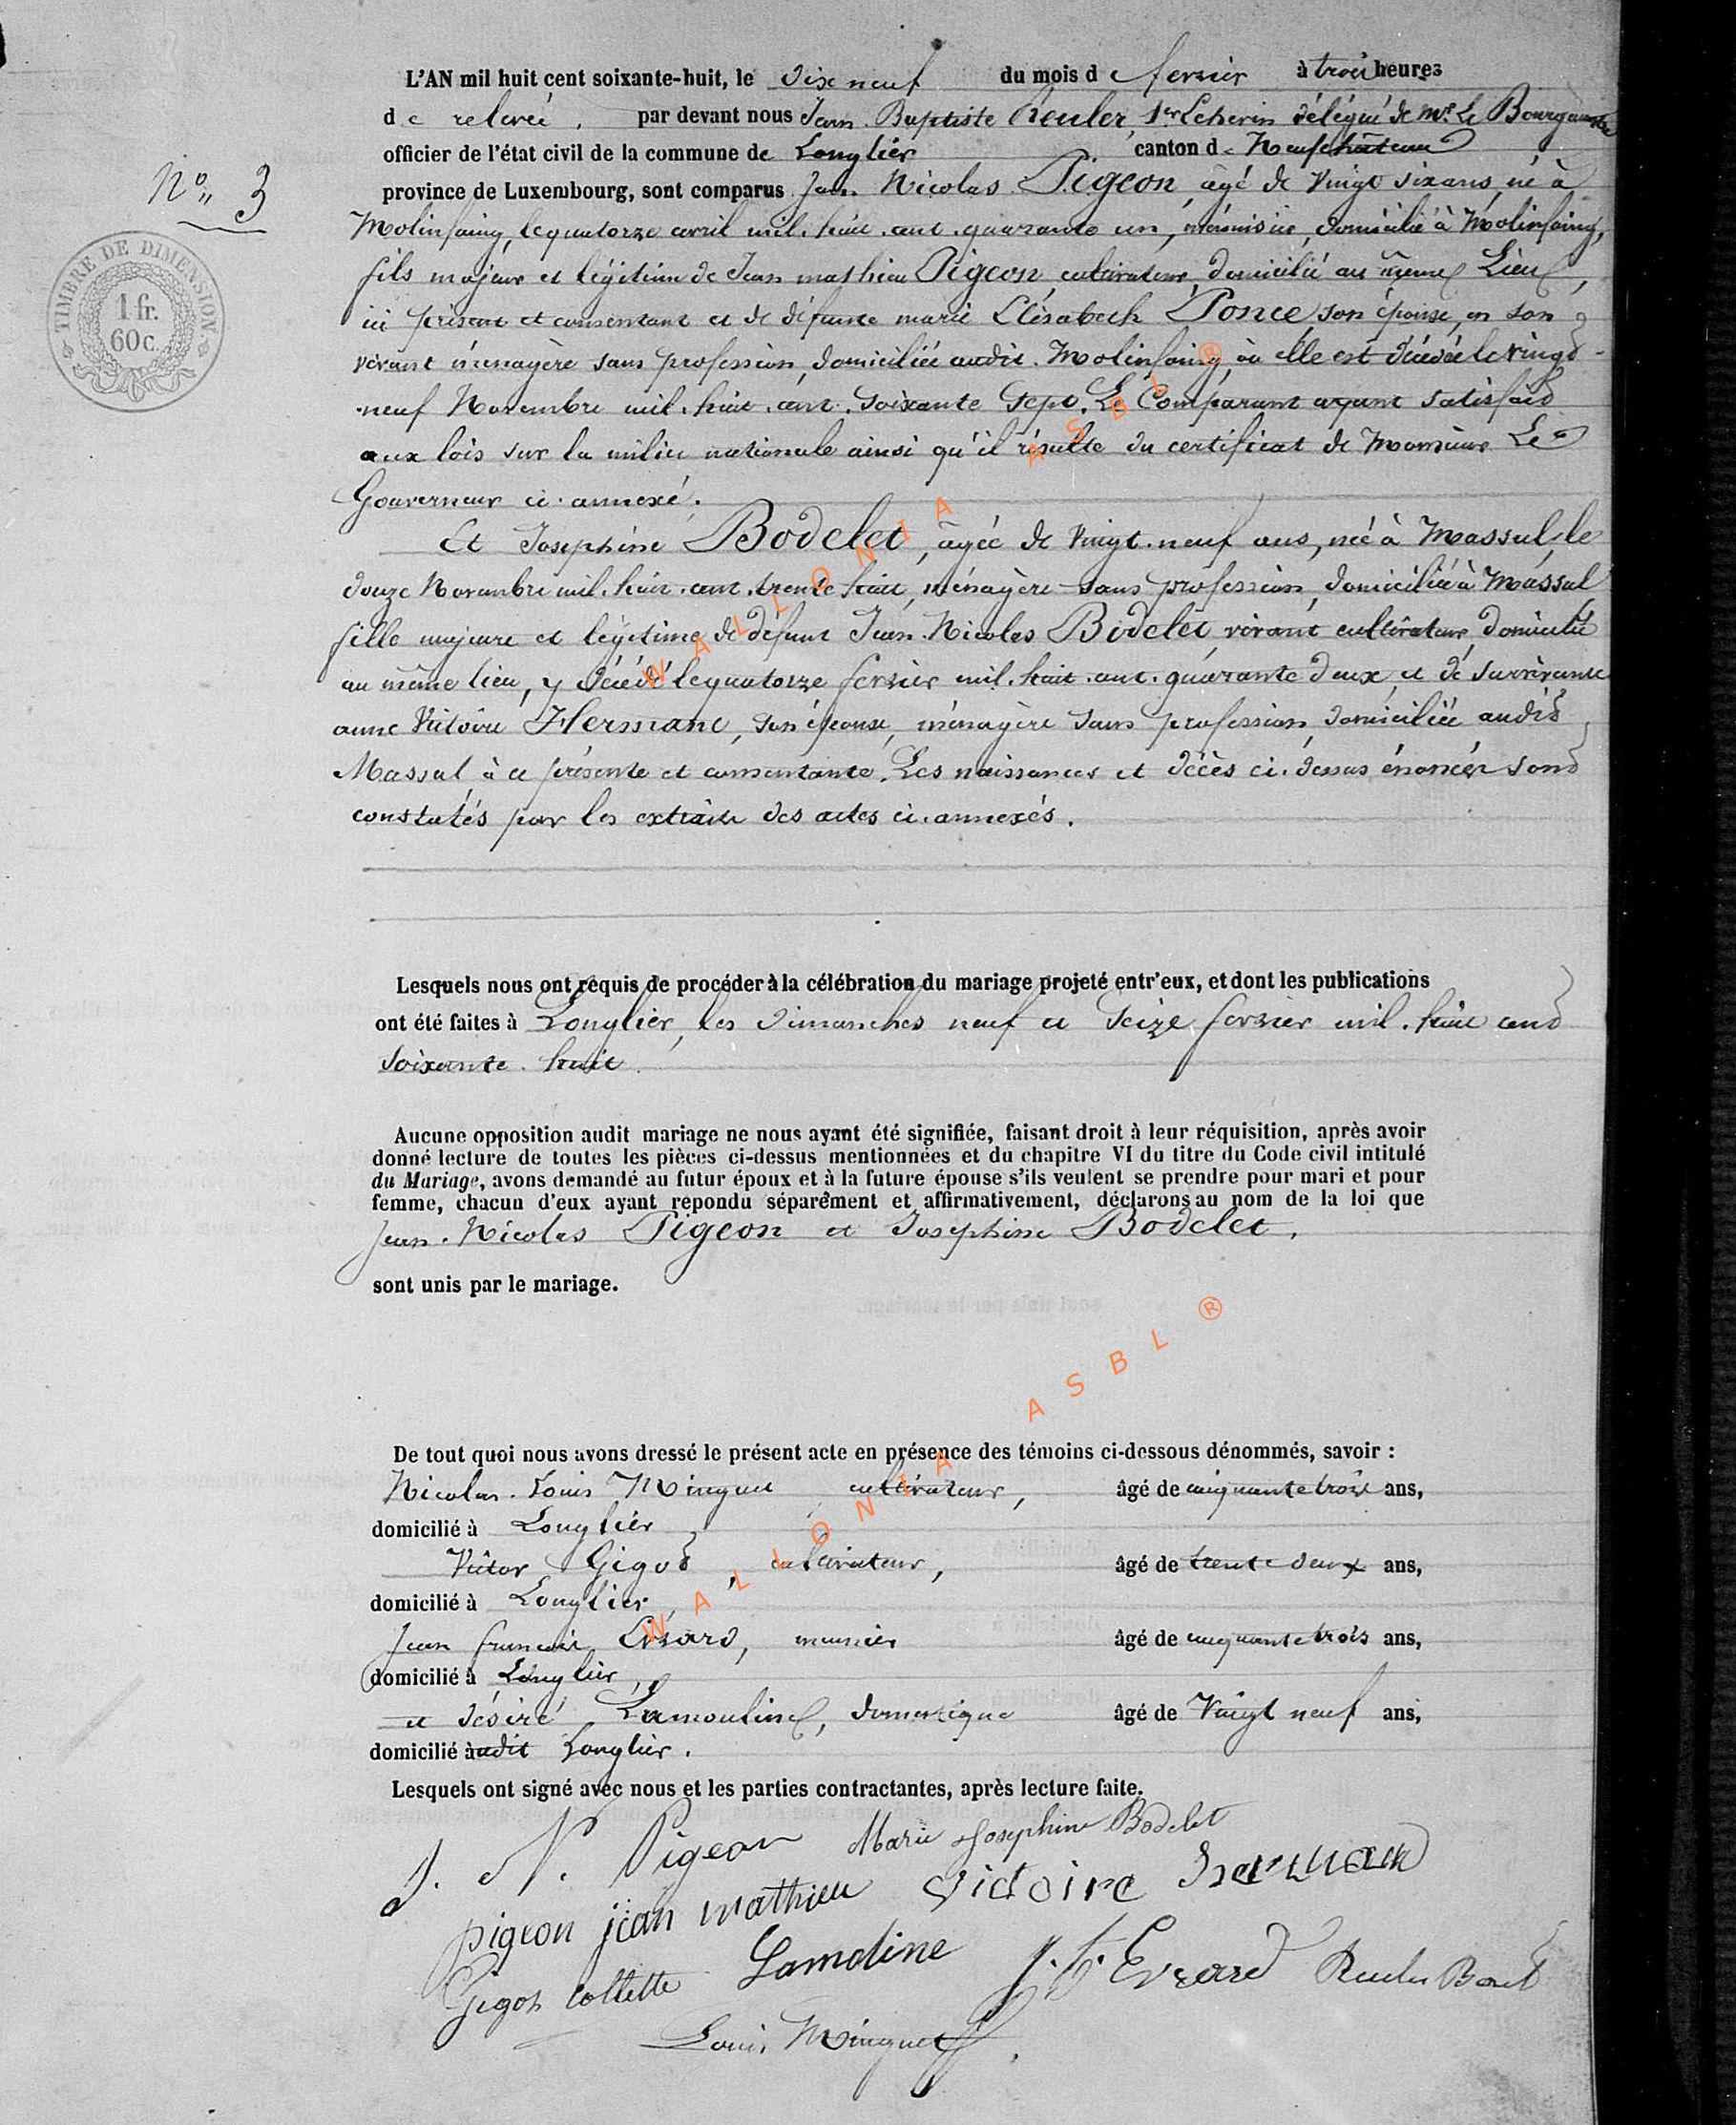 L'AN mil huit cent soixante-huit, le dix neuf du mois de fevrier à trois heures
de relevée, par devant nous Jean Baptiste Reuler, 1er Echevin délégué de Mr. Le Bourgmestre
officier de l'état civil de la commune de Longlier canton de Neufchâteau
N° 3
province de Luxembourg, sont comparus Jean Nicolas Pigeon, âgé de Vingt six ans, né à
Molinfaing, le quatorze avril mil huit cent quarante un, menuisier, domicilié à Molinfaing,
TIMBRE DE DIMENSION
1 fr.
60 c.
fils majeur et légitime de Jean mathieu Pigeon, cultivateur, domicilié au même Lieu,
ici présent et consentant et de défunte marie Elisabeth Ponce, son épouse, en son
vivant ménagère sans profession, domiciliée audit Molinfaing, où elle est décédée le vingt
neuf Novembre mil huit cent soixante sept. Le Comparant ayant satisfait
aux lois sur la milice nationale ainsi qu'il résulte du certificat de Monsieur Le
Gouverneur ci-annexé.
Et Josephine Bodelet, âgée de Vingt-neuf ans, née à Massul, le
douze Novembre mil huit cent trente huit, ménagère sans profession, domiciliée à Massul
fille majeure et légitime de défunt Jean Nicolas Bodelet, vivant cultivateur, domicilié
au même lieu, y décédé le quatorze fevrier mil huit cent quarante deux, et de survivante
anne Victoire Hermant, son épouse, ménagère sans profession, domiciliée audit
Massul, à ce présente et consentante. Les naissances et décès ci-dessus énoncés sont
constatés par les extraits des actes ci-annexés.
Lesquels nous ont requis de procéder à la célébration du mariage projeté entr'eux, et dont les publications
ont été faites à Longlier, les dimanches neuf et seize fevrier mil huit cent
soixante huit.
Aucune opposition audit mariage ne nous ayant été signifiée, faisant droit à leur réquisition, après avoir
donné lecture de toutes les pièces ci-dessus mentionnées et du chapitre VI du titre du Code civil intitulé
du Mariage, avons demandé au futur époux et à la future épouse s'ils veulent se prendre pour mari et pour
femme, chacun d'eux ayant répondu séparément et affirmativement, déclarons au nom de la loi que
Jean Nicolas Pigeon et Josephine Bodelet,
sont unis par le mariage.
De tout quoi nous avons dressé le présent acte en présence des témoins ci-dessous dénommés, savoir :
Nicolas Louis Minguet cultivateur, âgé de cinquante trois ans,
domicilié à Longlier
Victor Gigot, cultivateur, âgé de trente deux ans,
domicilié à Longlier,
Jean francois Evrard, meunier âgé de cinquante trois ans,
domicilié à Longlier,
et désiré Lamouline, domestique âgé de Vingt neuf ans,
domicilié audit Longlier.
Lesquels ont signé avec nous et les parties contractantes, après lecture faite.
J. N. Pigeon Marie Josephine Bodelet
pigeon jean mathieu victoire herman
Gigot Collette Lamoline J. f. Evrard
Louis Minguet
WALLONIA ASBL ®
WALLONIA ASBL ®